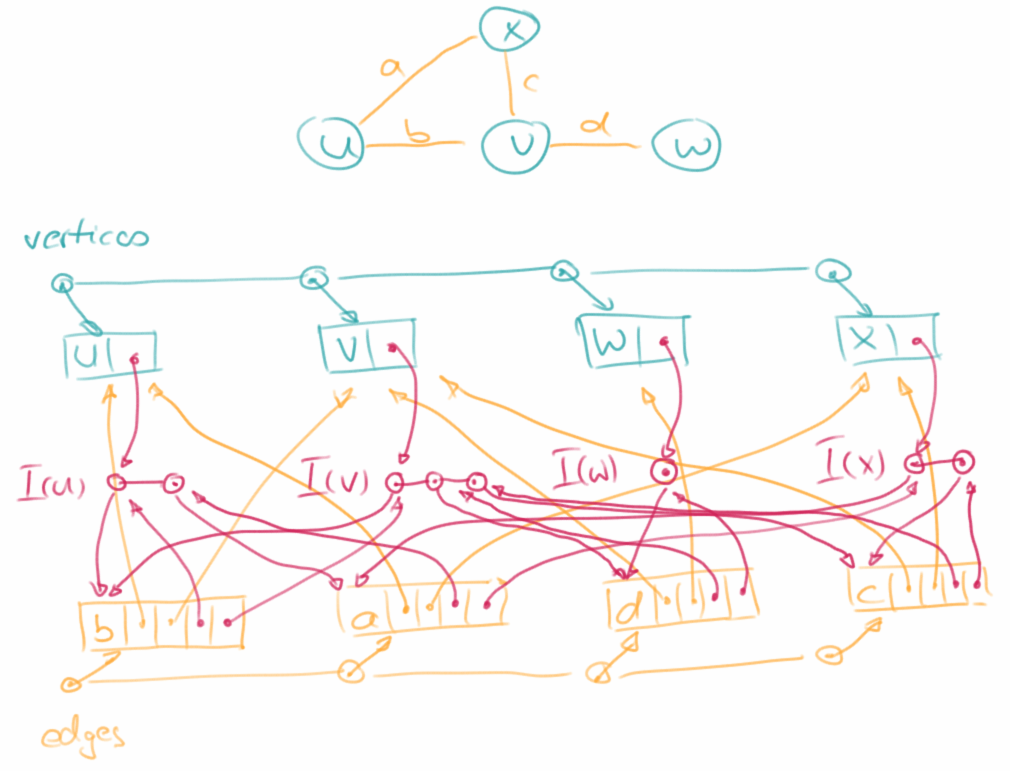 x
a
c
u
b
v
d
w
vertices
u
v
w
x
I(u)
I(v)
I(w)
I(x)
b
a
d
c
edges